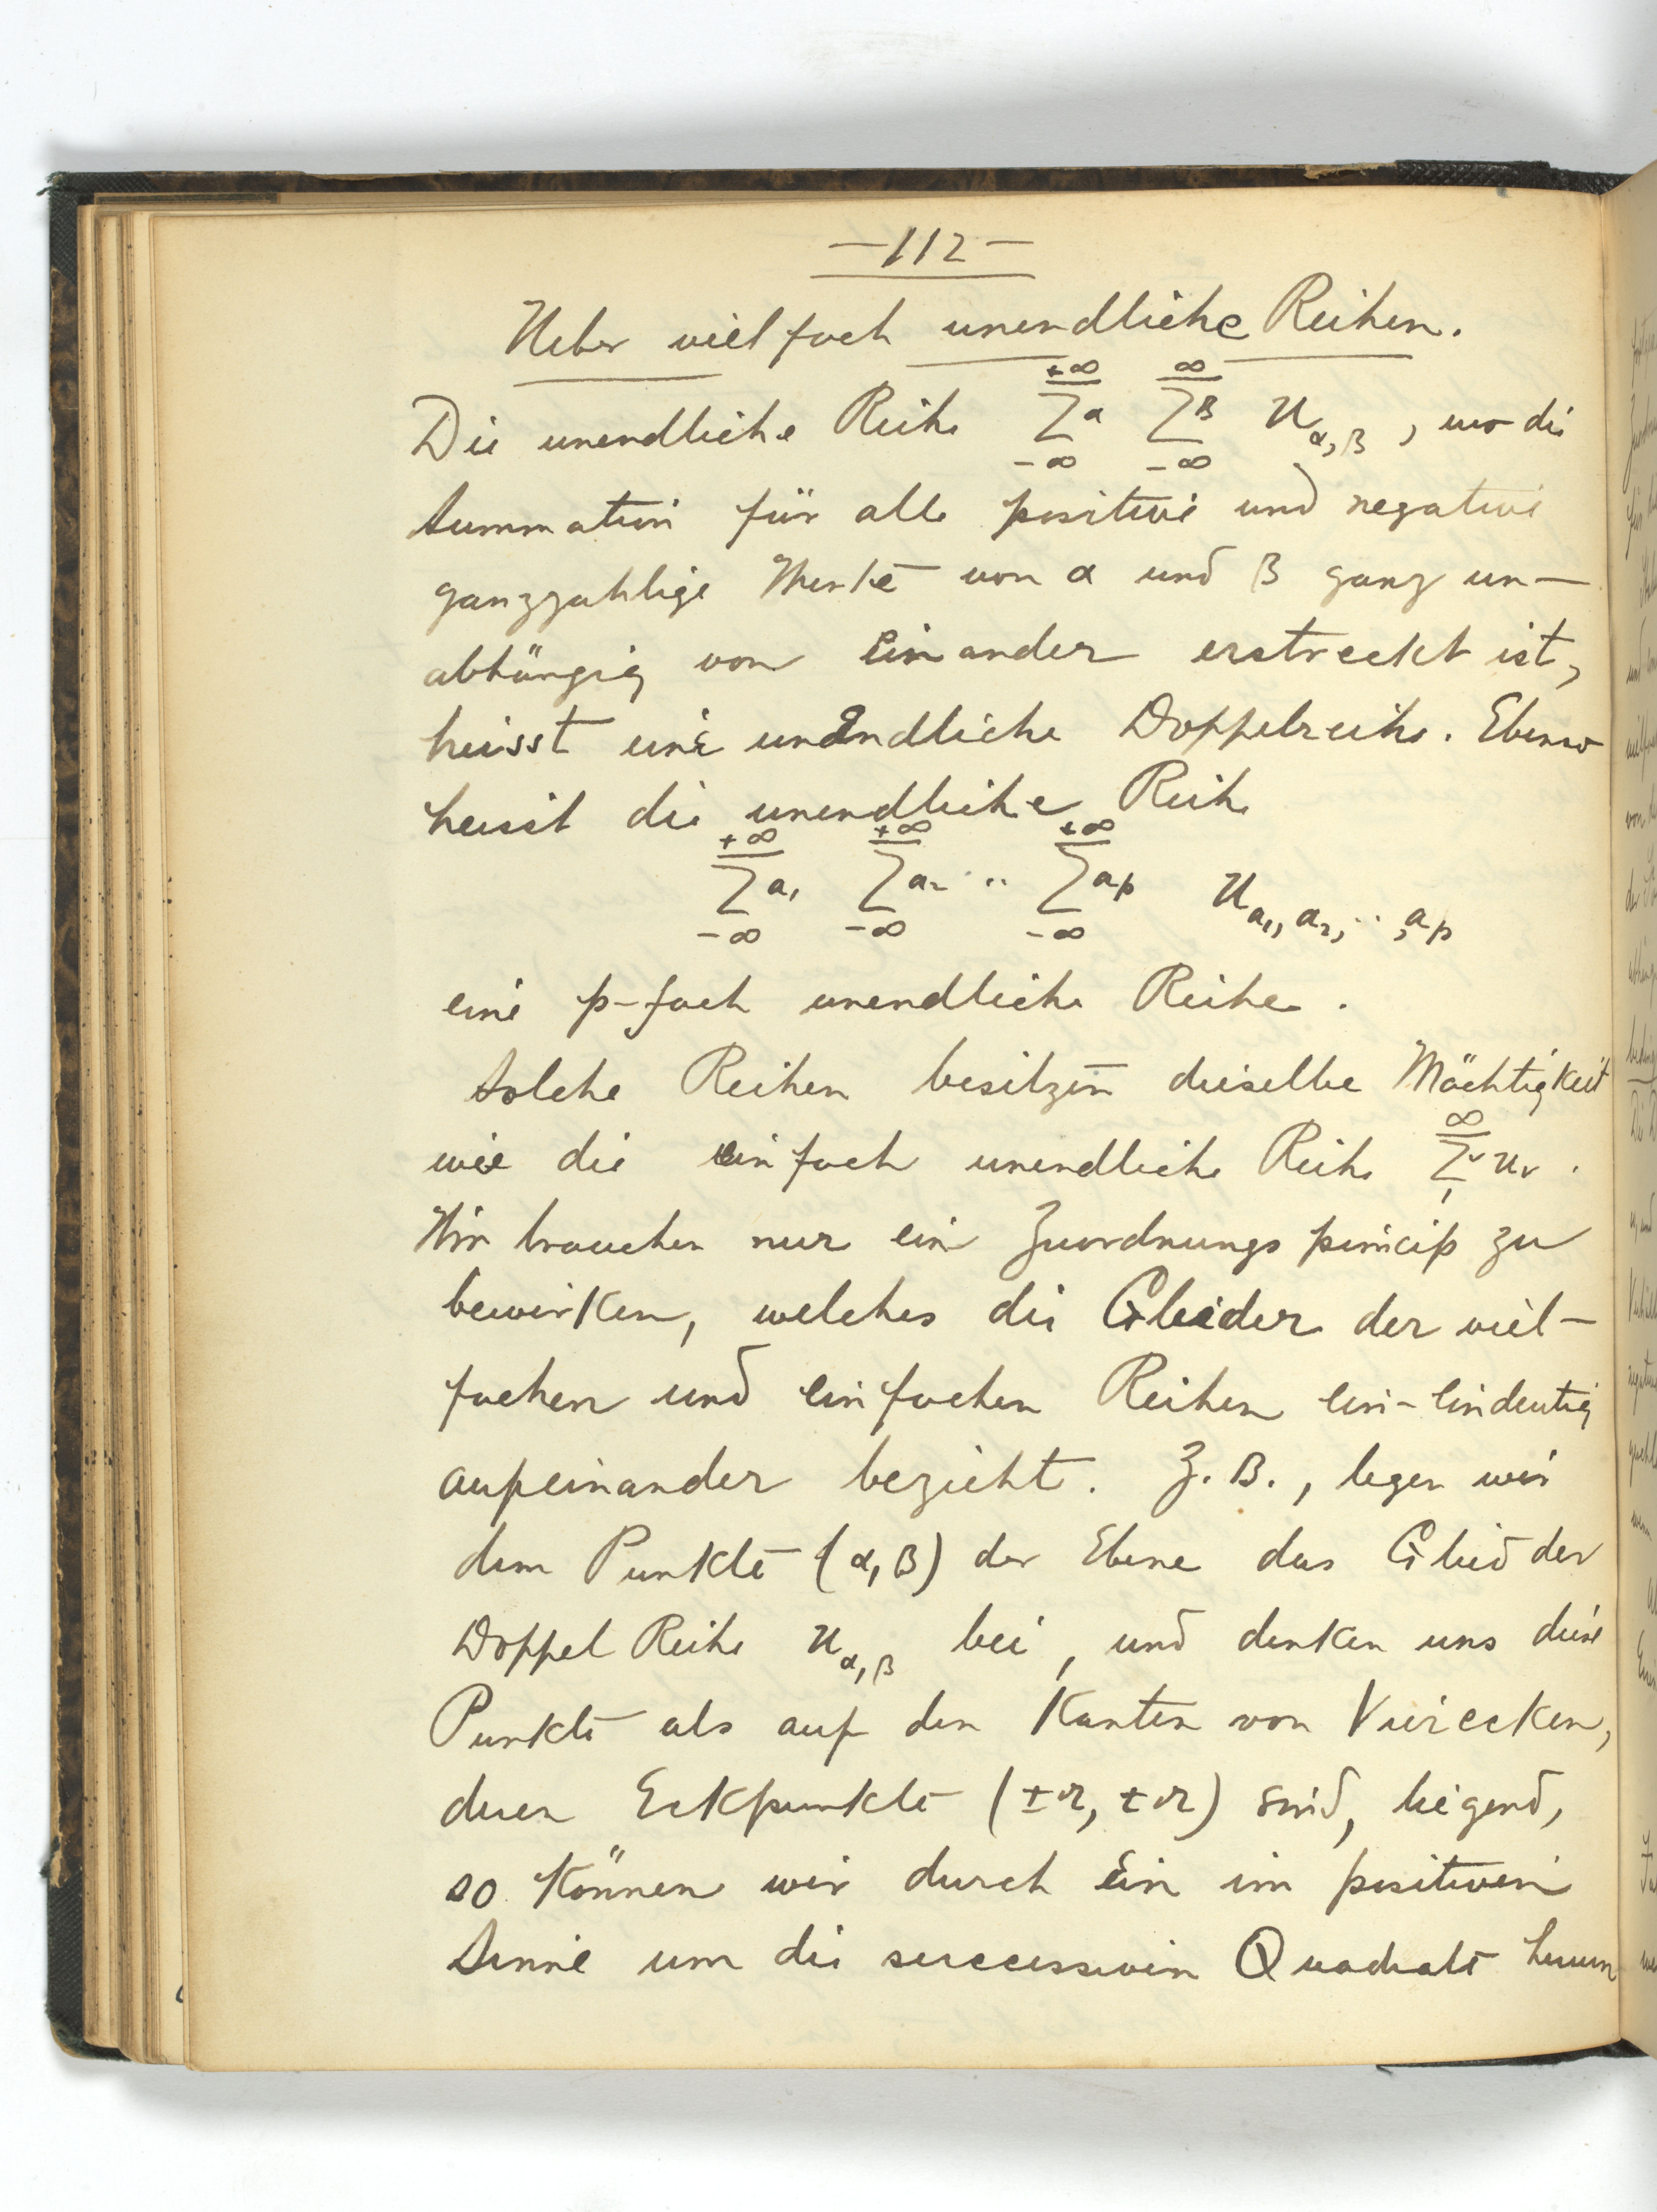 —112—
Ueber vielfach unendliche Reihen.
Die unendliche Reihe \sum_{-\infty}^{+\infty}α \sum_{-\infty}^{\infty}β u_{α,β}, wo die
Summation für alle positive und negative
ganzzahlige Werte von α und β ganz un-
abhängig von einander erstreckt ist,
heisst eine unendliche Doppelreihe. Ebenso
heisst die unendliche Reihe
\sum_{-\infty}^{+\infty}α_1 \sum_{-\infty}^{+\infty}α_2 ·· \sum_{-\infty}^{+\infty}α_p u_{α_1, α_2, ··, α_p}
eine p-fach unendliche Reihe.
Solche Reihen besitzen dieselbe Mächtigkeit
wie die einfach unendliche Reihe \sum_{1}^{\infty}ν u_ν.
Wir brauchen nur ein Zuordnungsprincip zu
bewirken, welches die Glieder der viel-
fachen und einfachen Reihen ein-eindeutig
aufeinander bezieht. Z.B., legen wir
dem Punkte (α, β) der Ebene das Glied der
Doppel Reihe u_{α,β} bei, und denken uns diese
Punkte als auf den Kanten von Vierecken,
deren Eckpunkte (±r, ±r) sind, liegend,
so können wir durch ein im positiven
Sinne um die successiven Quadrate herum